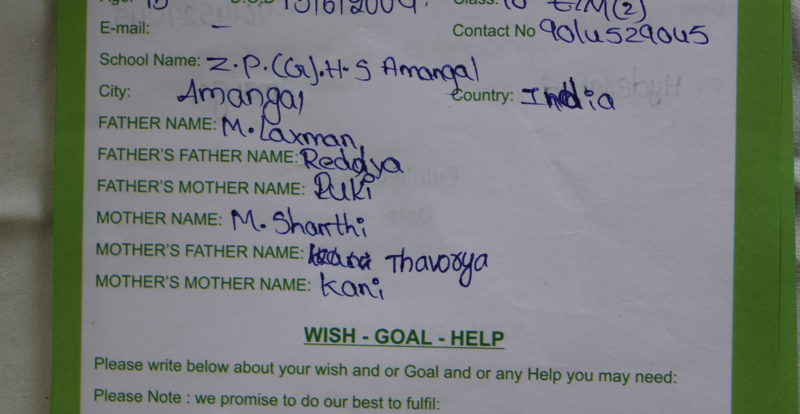 Age: 15 D.O.B 15/6/2009. Class: 10 E/M(2)
E-mail: — Contact No 9014529045
School Name: Z.P.(G).H.S Amangal
City: Amangal Country: India
FATHER NAME: M. Laxman
FATHER'S FATHER NAME: Reddya
FATHER'S MOTHER NAME: Puki
MOTHER NAME: M. Shanthi
MOTHER'S FATHER NAME: Thavorya
MOTHER'S MOTHER NAME: Kani
WISH - GOAL - HELP
Please write below about your wish and or Goal and or any Help you may need:
Please Note : we promise to do our best to fulfil: